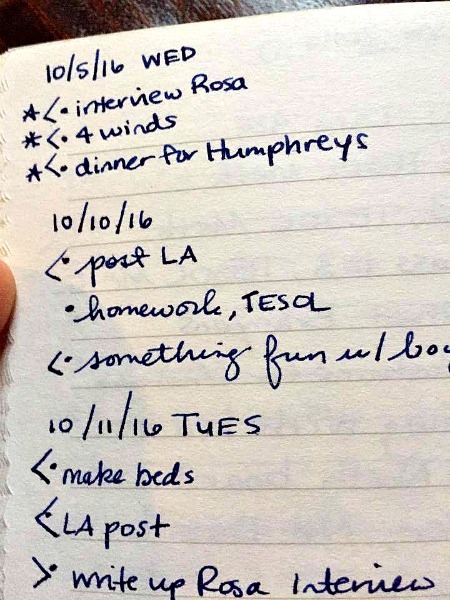 10/5/16 WED
*<• interview Rosa
*<• 4 winds
*<• dinner for Humphreys
10/10/16
<• post LA
• homework, TESOL
<• something fun w/
10/11/16 TUES
<• make beds
<• LA post
>• write up Rosa Interview